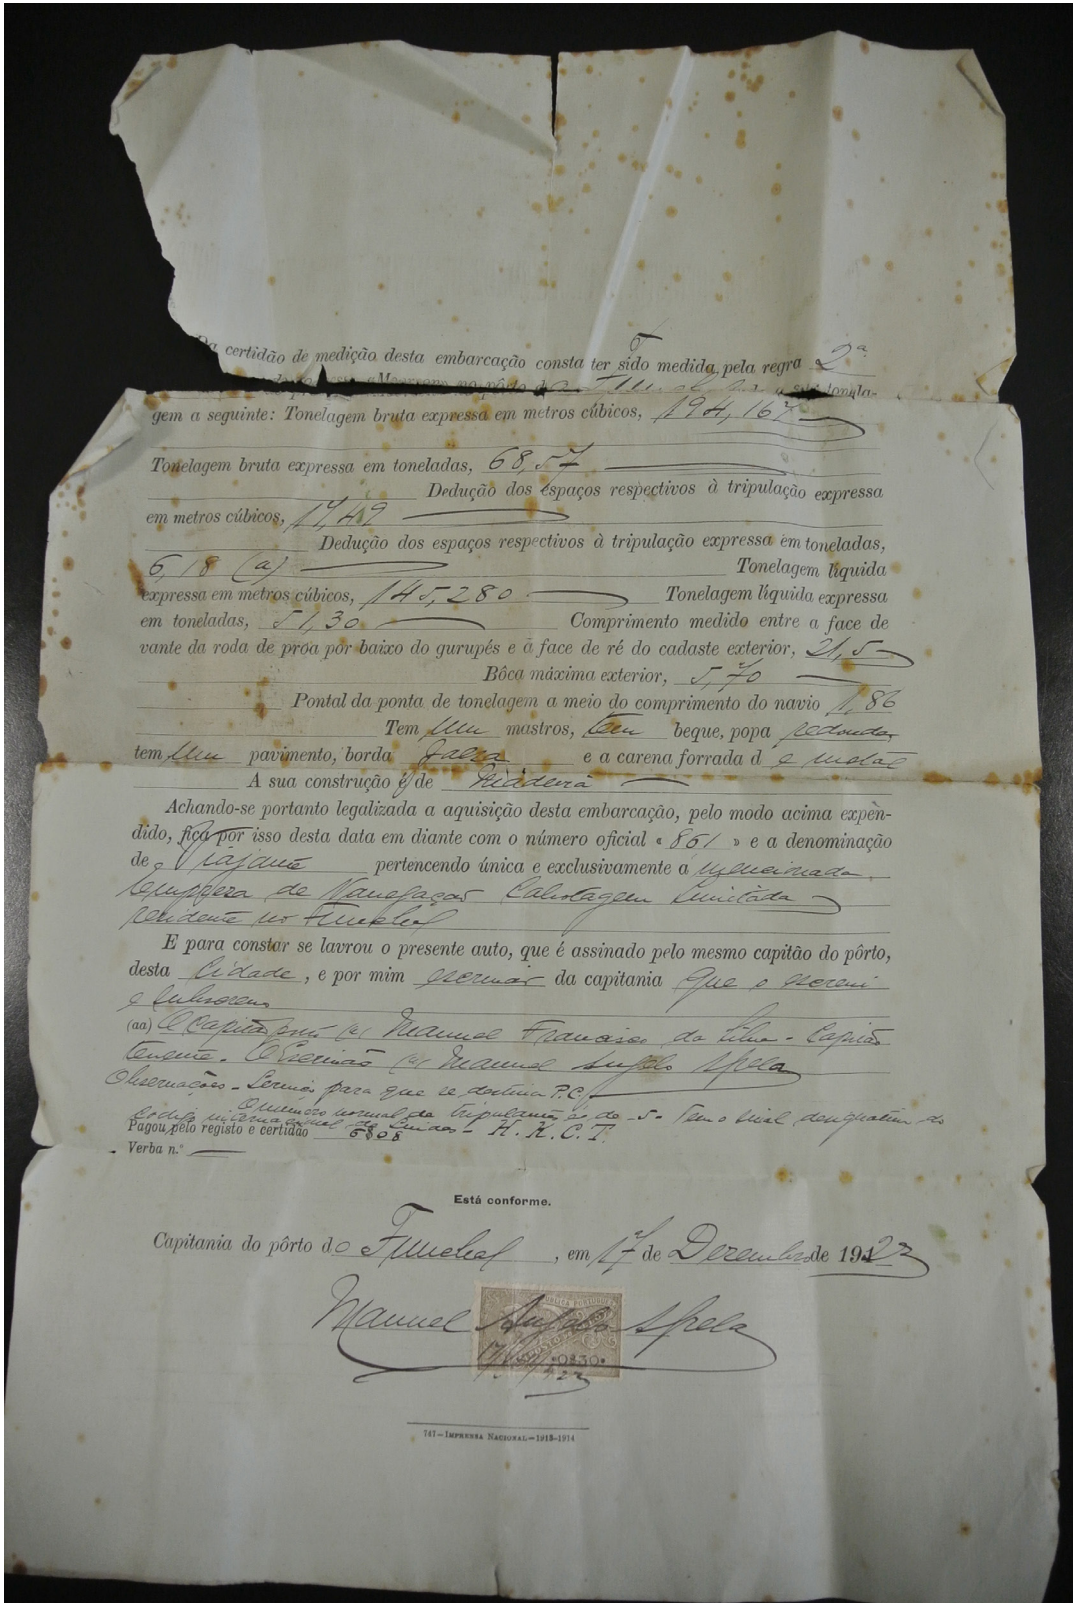 Da certidão de medição desta embarcação consta ter sido medida pela regra 2ª
no pôrto do Funchal a sua tonela-
gem a seguinte: Tonelagem bruta expressa em metros cúbicos, 194,167
Tonelagem bruta expressa em toneladas, 68,57
Dedução dos espaços respectivos à tripulação expressa
em metros cúbicos, 17,49
Dedução dos espaços respectivos à tripulação expressa em toneladas,
6,18 (a) Tonelagem líquida
expressa em metros cúbicos, 145,280 Tonelagem líquida expressa
em toneladas, 51,30 Comprimento medido entre a face de
vante da roda de proa por baixo do gurupés e à face de ré do cadaste exterior, 21,5
Bôca máxima exterior, 5,70
Pontal da ponta de tonelagem a meio do comprimento do navio 1,86
Tem um mastros, tem beque, popa redonda,
tem um pavimento, borda e a carena forrada d e metal
A sua construção é de Madeira
Achando-se portanto legalizada a aquisição desta embarcação, pelo modo acima expen-
dido, fica por isso desta data em diante com o número oficial «861» e a denominação
de Viajante pertencendo única e exclusivamente á mencionada
Empreza de Navegação Cabotagem Limitada
residente no Funchal
E para constar se lavrou o presente auto, que é assinado pelo mesmo capitão do pôrto,
desta Cidade, e por mim escrivão da capitania que o escrevi
e subscrevo
(aa) O Capitão porto (a) Manuel Francisco da Silva - Capitão
tenente. O Escrivão (a) Manuel Angelo
Observações - Serviço para que se destina P.C.
O número normal de tripulantes é de -5- Tem o sinal designativo do
Codigo internacional de Sinaes - H. K. C. T.
Pagou pelo registo e certidão 6$08
Verba n.º
Está conforme.
Capitania do pôrto do Funchal, em 17 de Dezembro de 1922
Manuel Angelo
0$30
787—IMPRENSA NACIONAL—1913-1914